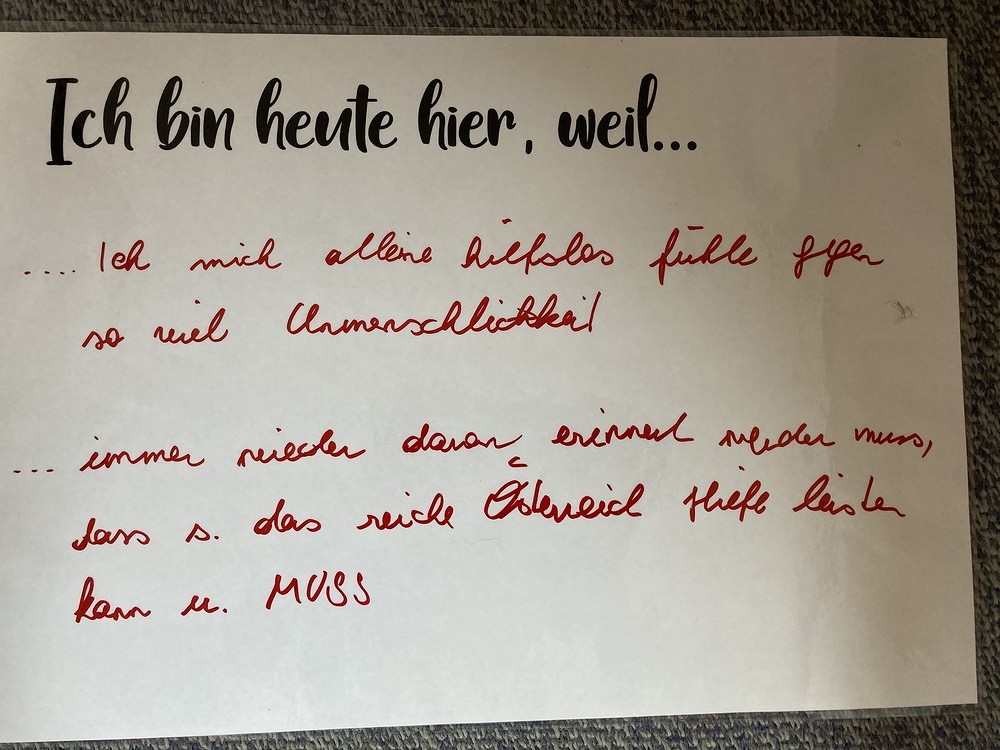 Ich bin heute hier, weil...
.... Ich mich alleine hilfslos fühle gegen
so viel Unmenschlichkeit
... immer wieder daran erinnert werden muss,
dass s. das reiche Österreich Hilfe leisten
kann u. MUSS